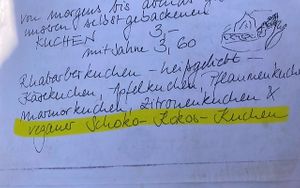 von morgens bis abends
unseren selbstgebackenen
KUCHEN 3,-
mit Sahne 3,60
Rhabarberkuchen - heißgeliebt -
Käsekuchen, Apfelkuchen, Pflaumenkuchen
Marmorkuchen, Zitronenkuchen &
veganer Schoko-Kokos-Kuchen